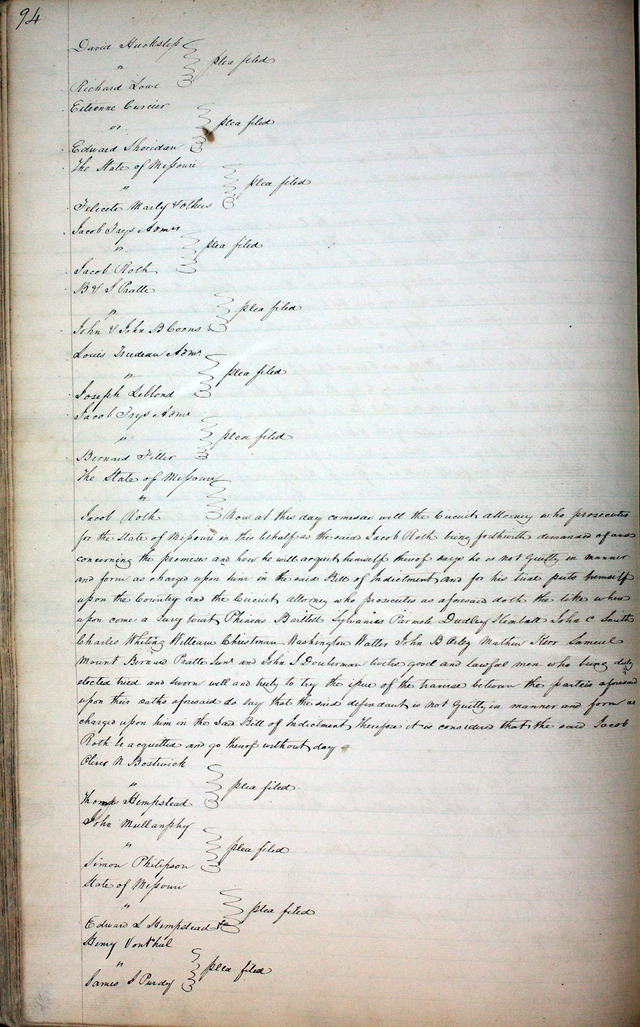 94
David Huckslep
" plea filed
Richard Lowe
Etienne Curcier
vs. plea filed
Edward Sheridan
The State of Missouri
" plea filed
Felicete Marly & others
Jacob Frys Admr
" plea filed
Jacob Roth
B & J Pratte
" plea filed
John & John B Coons
Louis Trudeau Admr
" plea filed
Joseph Leblond
Jacob Frys Admr
" plea filed
Bernard
The State of Missouri
"
Jacob Roth Now at this day comes as well the Circuit attorney who prosecutes
for the State of Missouri in this behalf as the said Jacob Roth being forthwith demanded of and
concerning the premises and how he will acquit himself therof says he is not Guilty in manner
and form as charged upon him in the said Bill of Indictment and for his trial puts himself
upon the Country and the Circuit attorney who prosecutes as aforesaid doth the like when
upon come a Jury towit Phineas Bartlett Sylvanias Parmele Dudley John C Smith
Charles Whiting William Christman Washington Waller John B Mathew Kerr Samuel
Mount Bernard Pratte Junr and John S twelve good and lawful men who being duly
elected tried and sworn well and truly to try the issue of the traverse between the parties aforesaid
upon their oaths aforesaid do say that the said defendant is not Guilty in manner and form as
charged upon him in the Said Bill of Indictment Therefore it is considered that the said Jacob
Roth be acquetted and go therof without day
Oliver N Bostwick
" plea filed
Thomas Hempstead
John Mullanphy
" plea filed
Simon Philipson
State of Missouri
" plea filed
Edward L Hempstead
Henry
" plea filed
James J Purdy